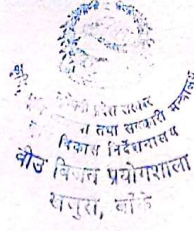 प्रदेश सरकार
तथा सहकारी मन्त्रालय
विकास निर्देशनालय
बीउ विजन प्रयोगशाला
खजुरा, बाँके